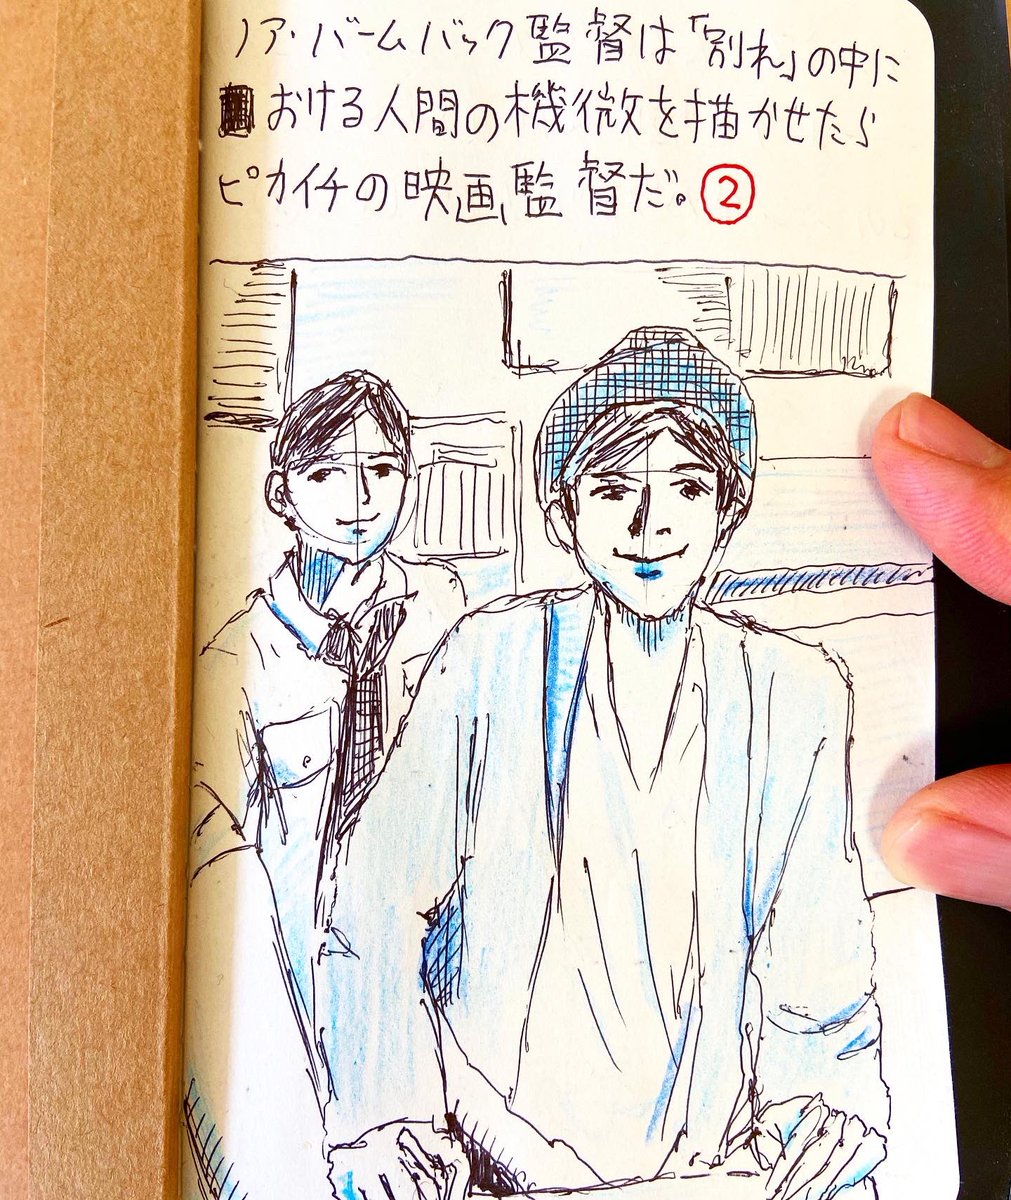 ノア・バームバック監督は「別れ」の中に
おける人間の機微を描かせたら
ピカイチの映画監督だ。②